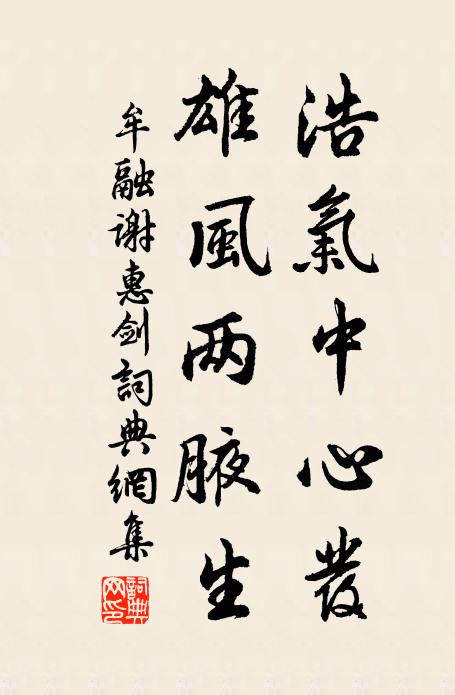 浩氣中心發
雄風两腋生
牟融謝惠剑詞典網集
詞典网印